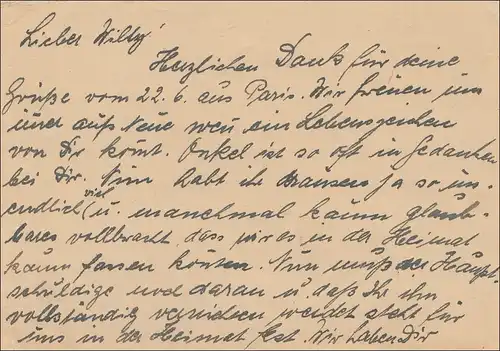 Lieber Willy!
Herzlichen Dank für deine
Grüße vom 22.6. aus Paris. Wir freuen uns
und aufs Neue wen ein Lebenszeichen
von Dir komt. Onkel ist so oft in Gedanken
bei Dir. Nun habt ihr draussen ja so un-
endlich viel u. manchmal kaum glaub-
bares vollbracht, dass wir es in der Heimat
kaum fassen konten. Nun muß der Haupt-
schuldige noch daran u. daß Ihr ihn
vollständig vernichten werdet steht für
uns in der Heimat fest. Wir haben Dir